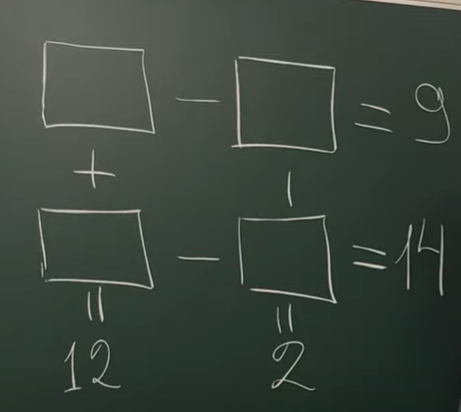 □ - □ = 9
+ |
□ - □ = 14
|| ||
12 2